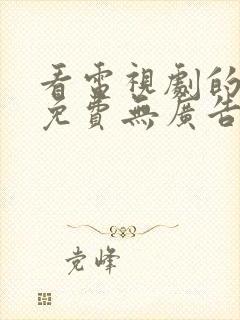 看電視劇的
免費無廣告
党峰